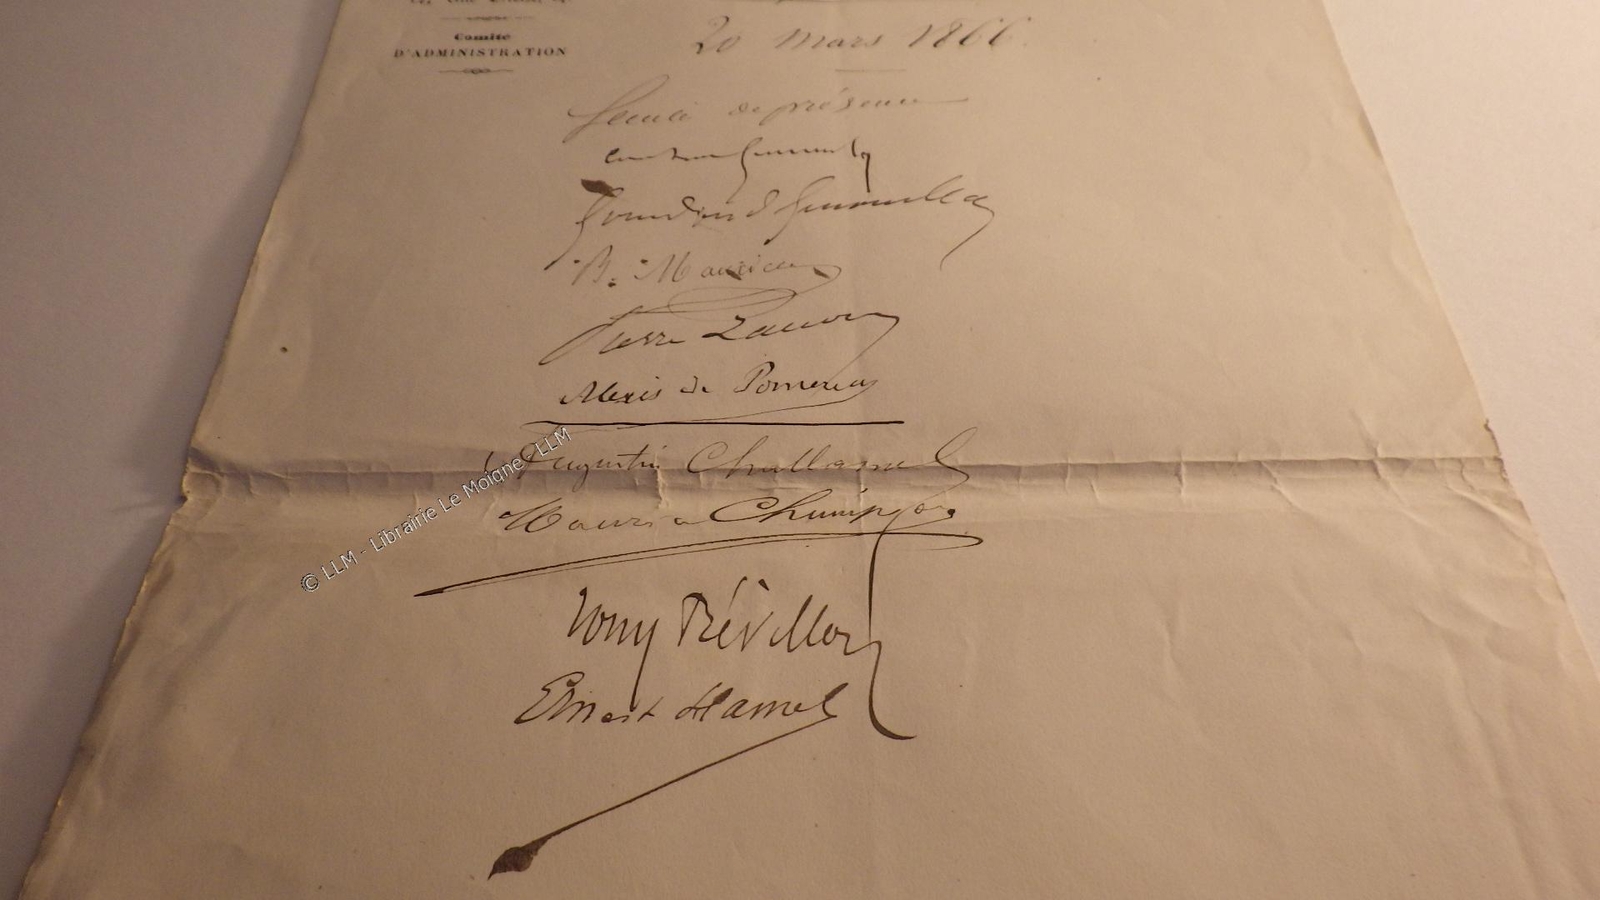 Comité
D'ADMINISTRATION
20 Mars 1866
feuille de présence
B. Maurice
Pierre Zaccone
Alexis de Pomereu
Augustin Challamel
Maurice Champion
Tony Révillon
Ernest Hamel
© LLM - Librairie Le Moigne - LLM